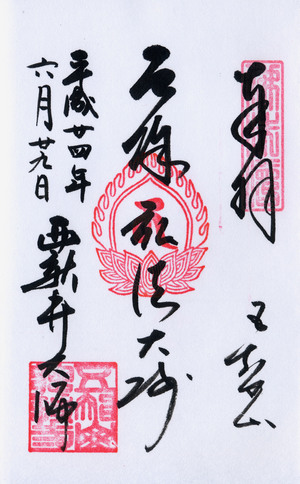 奉拝
五智山
厄除 弘法大師
平成廿四年
六月廿九日
西新井大師